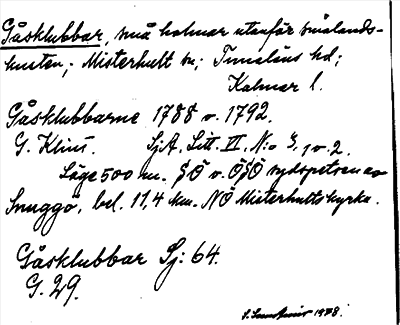 Gåsklubbar, små holmar utanför smålands-
kusten; Misterhult sn; Tunaläns hd;
Kalmar l.
Gåsklubbarne 1788 o. 1792.
G. Klint. SjA. Litt. II. N:o 3, 1 o. 2.
Läge 500 m. SÖ o. ÖSÖ sydspetsen av
Snuggö, bel. 11,4 km. NÖ Misterhults kyrka.
Gåsklubbar Sj: 64.
G. 29.
1928.